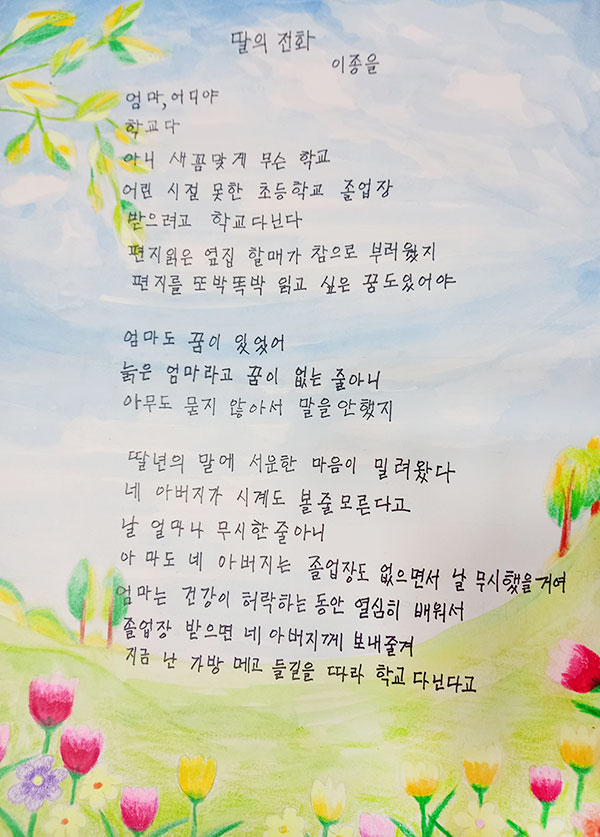 딸의 전화
이종을
엄마, 어디야
학교다
아니 새꼼맞게 무슨 학교
어린 시절 못한 초등학교 졸업장
받으려고 학교다닌다
편지읽은 옆집 할매가 참으로 부러웠지
편지를 또박똑박 읽고 싶은 꿈도있어야
엄마도 꿈이 있었어
늙은 엄마라고 꿈이 없는 줄아니
아무도 묻지 않아서 말을 안했지
딸년의 말에 서운한 마음이 밀려왔다
네 아버지가 시계도 볼줄모른다고
날 얼마나 무시한줄아니
아 마도 네 아버지는 졸업장도 없으면서 날 무시했을거여
엄마는 건강이 허락하는동안 열심히 배워서
졸업장 받으면 네아버지께 보내줄겨
지금 난 가방 메고 들길을 따라 학교 다닌다고